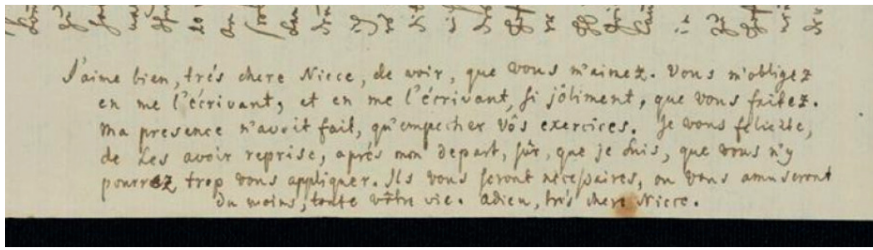 J'aime bien, trés chere Niece, de voir, que vous m'aimez. Vous m'obligez
en me l'écrivant, et en me l'écrivant si jôliment, que vous faites.
Ma presence n'auroit fait, qu'empecher vôs exercices. Je vous felicite,
de les avoir reprise, aprés mon depart, sûr, que je suis, que vous n'y
pourrez trop vous appliquer. Ils vous seront necessaires, ou vous amuseront
du moins, toute vôtre vie. adieu, trés chere Niece.